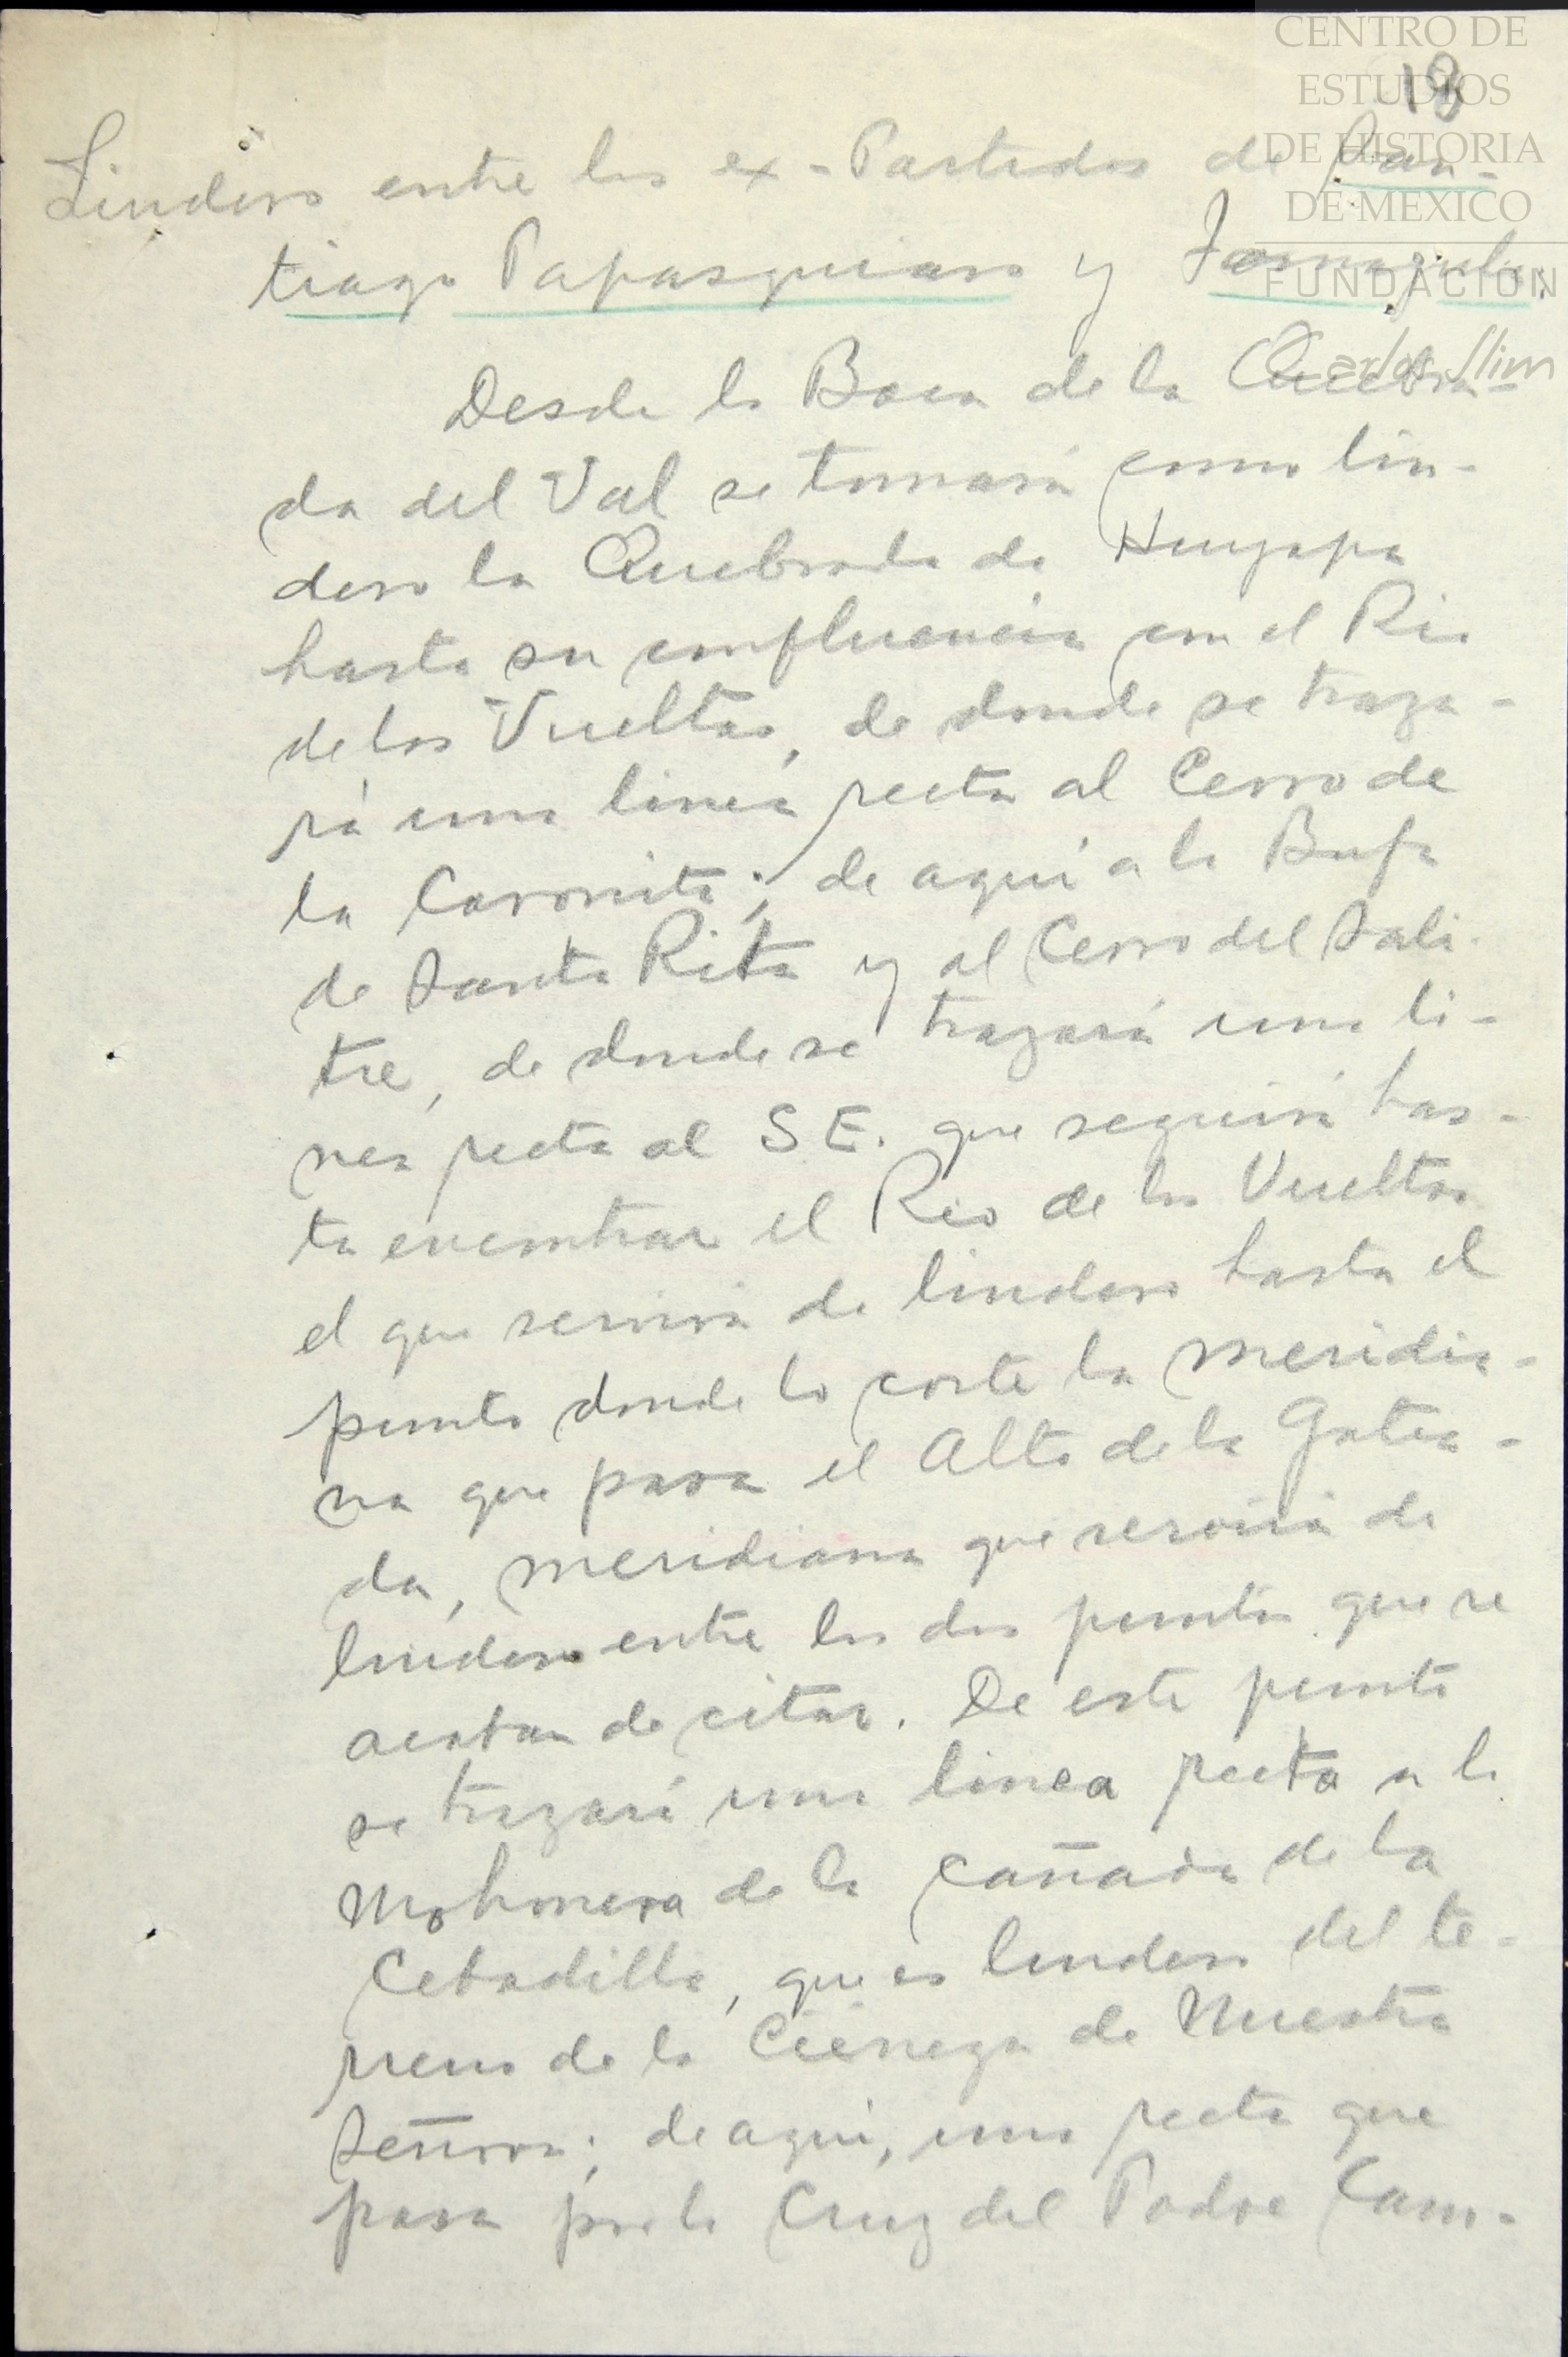 CENTRO DE
ESTUDIOS
DE HISTORIA
DE MEXICO
FUNDACIÓN
Carlos Slim
18
Lindero entre los ex-Partidos de San-
tiago Papasquiaro y Tamazula.
Desde la Boca de la Quebra-
da del Val se tomará como lin-
dero la Quebrada de Huyapa
hasta su confluencia con el Rio
de las Vueltas, de donde se traza-
rá una linea recta al Cerro de
la Coronita; de aquí a la Bufa
de Santa Rita y al Cerro del Sali-
tre, de donde se trazará una li-
nea recta al S E. que seguirá has-
ta encontrar el Rio de las Vueltas
el que servirá de lindero hasta el
punto donde lo corte la meridia-
na que pasa el Alto de la Gatea-
da, meridiana que servirá de
lindero entre los dos puntos que se
acaban de citar. De este punto
se trazará una linea recta a la
Mohonera de la Cañada de la
Cebadilla, que es lindero del te-
rreno de la Ciénega de Nuestra
Señora; de aquí, una recta que
pasa por la Cruz del Padre Cam-